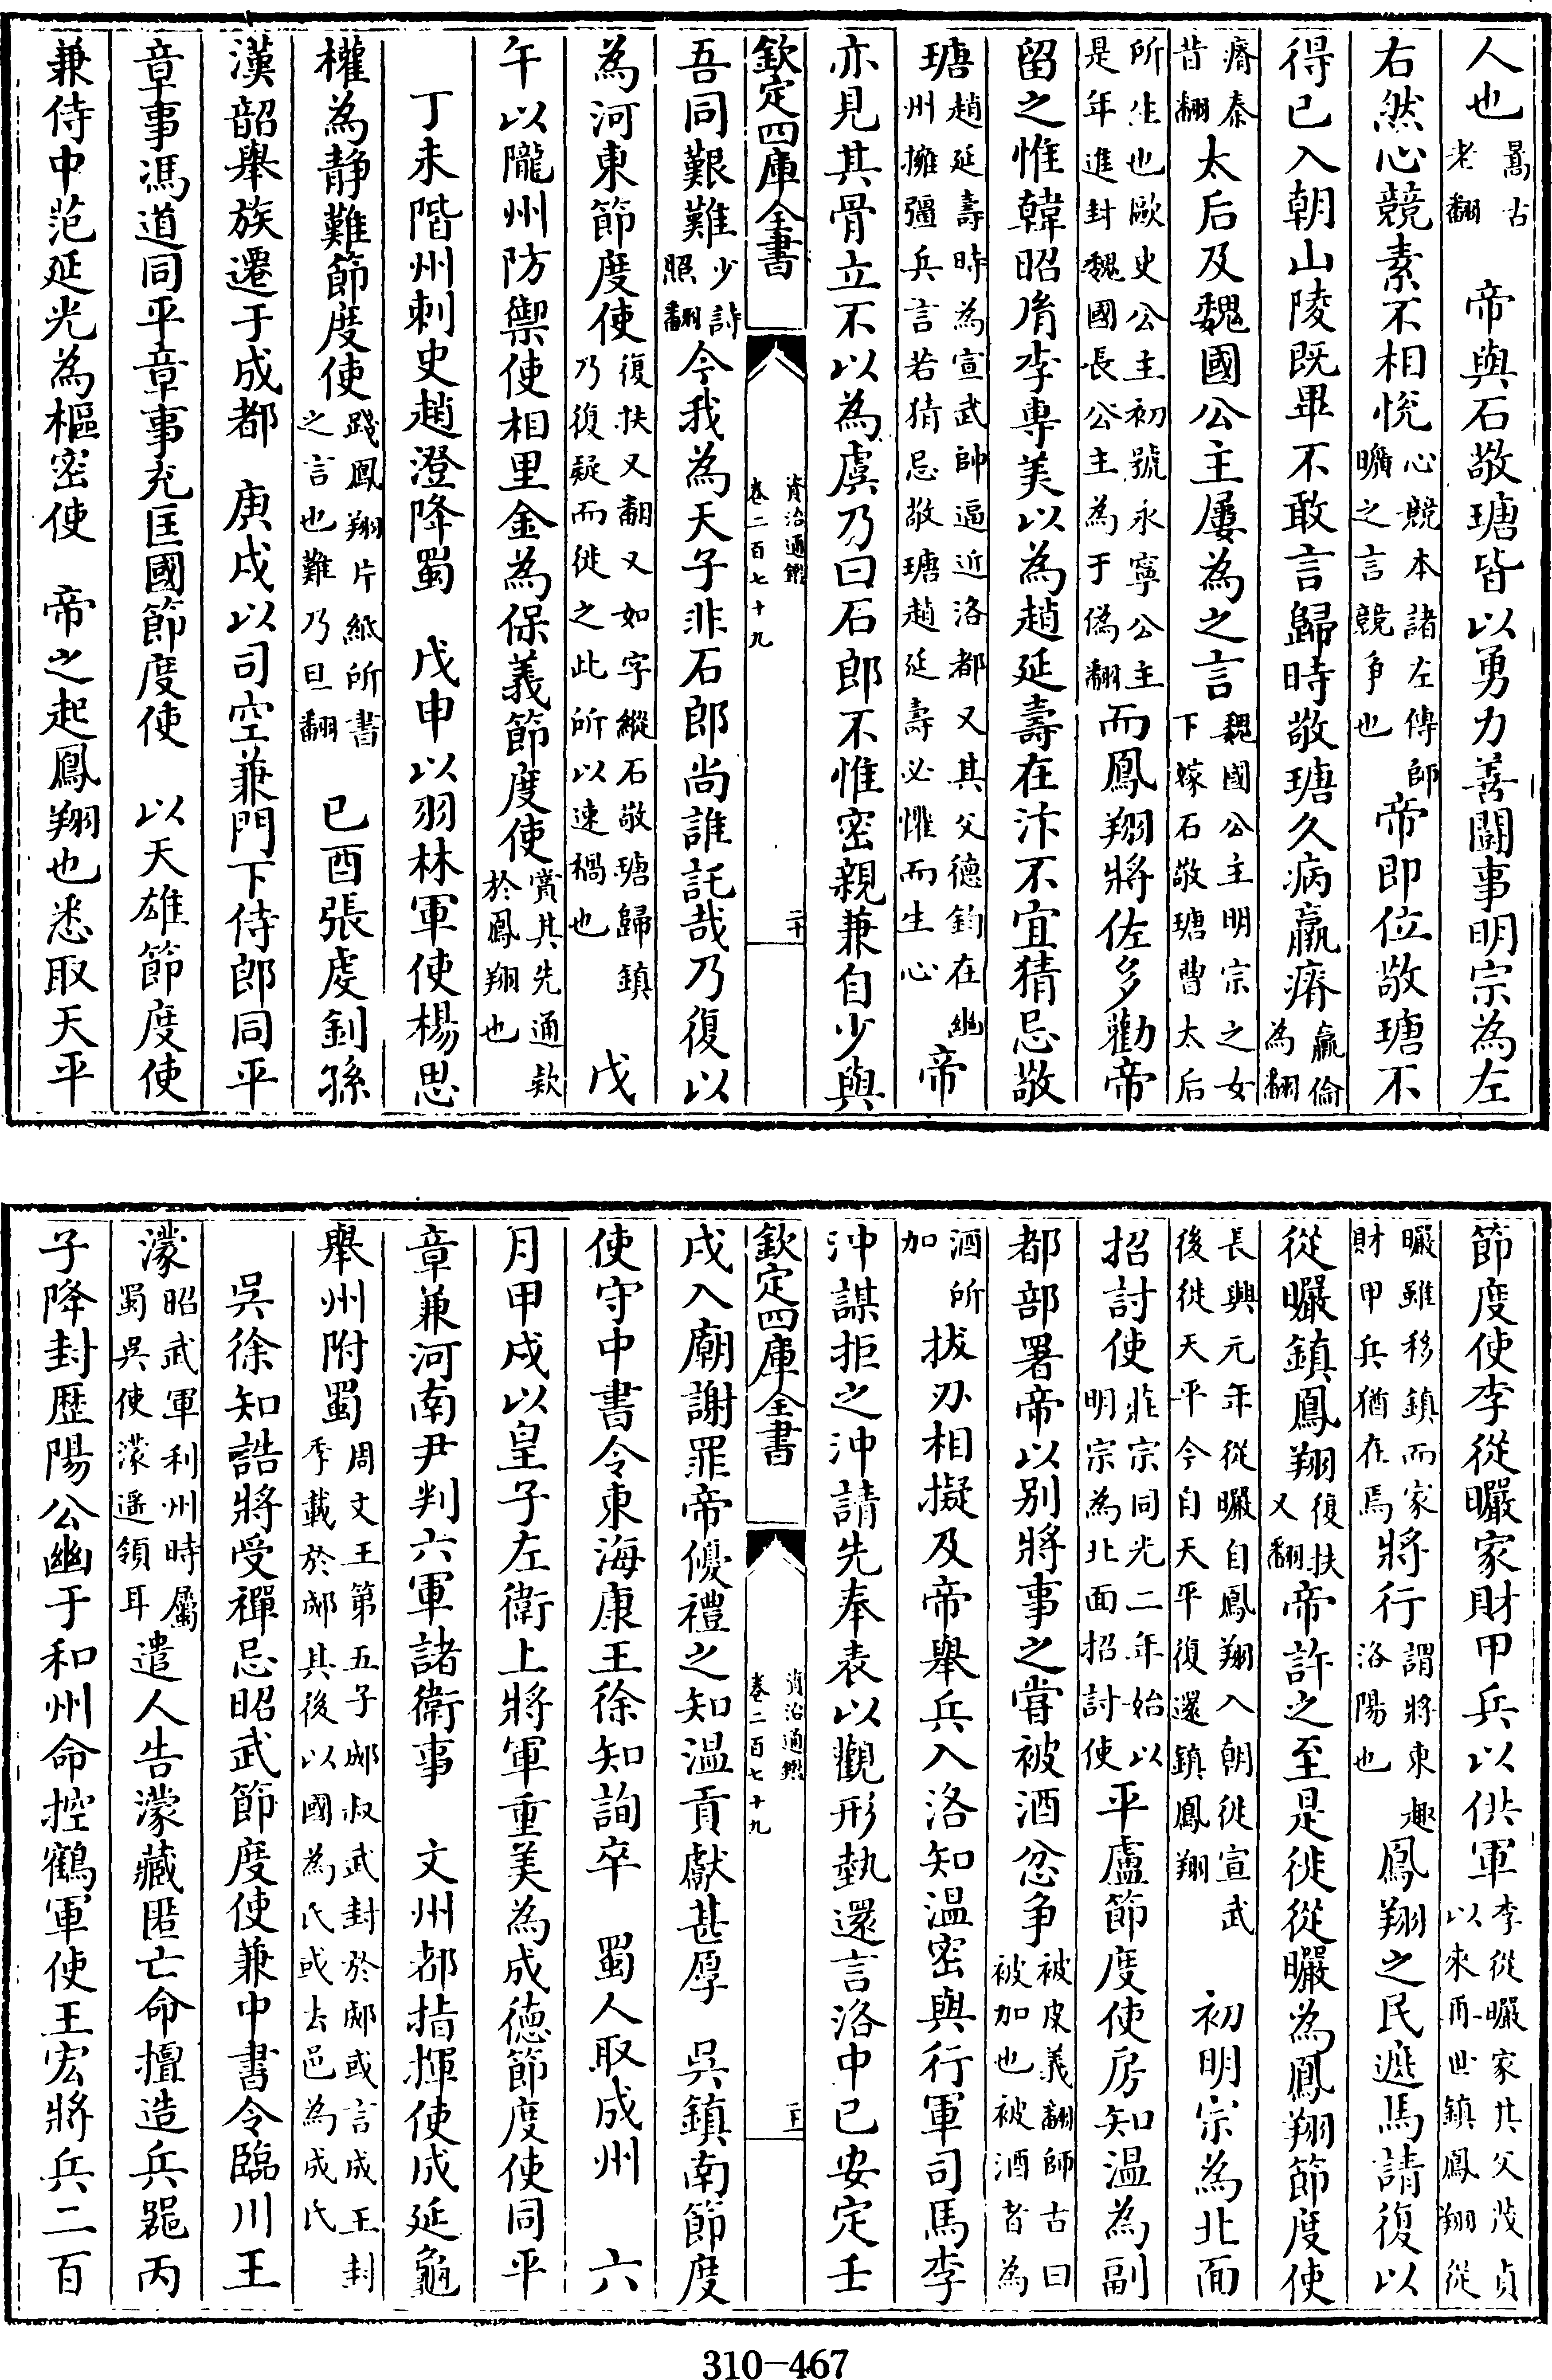 人也暠古老翻　帝與石敬瑭皆以勇力善鬬事明宗為左
右然心競素不相悅心競本諸左傳師曠之言競爭也帝即位敬瑭不
得已入朝山陵既畢不敢言歸時敬瑭久病羸瘠羸倫為翻
瘠秦昔翻太后及魏國公主屢為之言魏國公主明宗之女下嫁石敬瑭曹太后
所生也歐史公主初號永寧公主是年進封魏國長公主為于偽翻而鳳翔將佐多勸帝
留之惟韓昭胤李專美以為趙延壽在汴不宜猜忌敬
瑭趙延壽時為宣武帥逼近洛都又其父德鈞在幽州擁彊兵言若猜忌敬瑭趙延壽必懼而生心帝
亦見其骨立不以為虞乃曰石郎不惟密親兼自少與
欽定四庫全書　資治通鑑卷二百七十九　二十
吾同艱難少詩照翻今我為天子非石郎尚誰託哉乃復以
為河東節度使復扶又翻又如字縱石敬瑭歸鎮乃復疑而徙之此所以速禍也　戊
午以隴州防禦使相里金為保義節度使賞其先通款於鳳翔也
丁未階州刺史趙澄降蜀　戊申以羽林軍使楊思
權為靜難節度使踐鳳翔片紙所書之言也難乃旦翻　已酉張虔釗孫
漢韶舉族遷于成都　庚戌以司空兼門下侍郎同平
章事馮道同平章事充匡國節度使　以天雄節度使
兼侍中范延光為樞密使　帝之起鳳翔也悉取天平
節度使李從曮家財甲兵以供軍李從曮家其父茂貞以來再世鎮鳳翔從
曮雖移鎮而家財甲兵猶在焉將行謂將東趣洛陽也鳳翔之民遮馬請復以
從曮鎮鳳翔復扶又翻帝許之至是徙從曮為鳳翔節度使
長興元年從曮自鳳翔入朝徙宣武後徙天平今自天平復還鎮鳳翔　初明宗為北面
招討使莊宗同光二年始以明宗為北面招討使平盧節度使房知溫為副
都部署帝以别將事之嘗被酒忿爭被皮義翻師古曰被加也被酒者為
酒所加拔刃相擬及帝舉兵入洛知溫密與行軍司馬李
沖謀拒之沖請先奉表以觀形埶還言洛中已安定壬
欽定四庫全書　資治通鑑卷二百七十九　二十一
戌入廟謝罪帝優禮之知溫貢獻甚厚　吳鎮南節度
使守中書令東海康王徐知詢卒　蜀人取成州　六
月甲戌以皇子左衛上將軍重美為成德節度使同平
章兼河南尹判六軍諸衛事　文州都指揮使成延龜
舉州附蜀周文王第五子郕叔武封於郕或言成王封季載於郕其後以國為氏或去邑為成氏
吳徐知誥將受禪忌昭武節度使兼中書令臨川王
濛昭武軍利州時屬蜀吳使濛遥領耳遣人告濛藏匿亡命擅造兵器丙
子降封歷陽公幽于和州命控鶴軍使王宏將兵二百
310-467